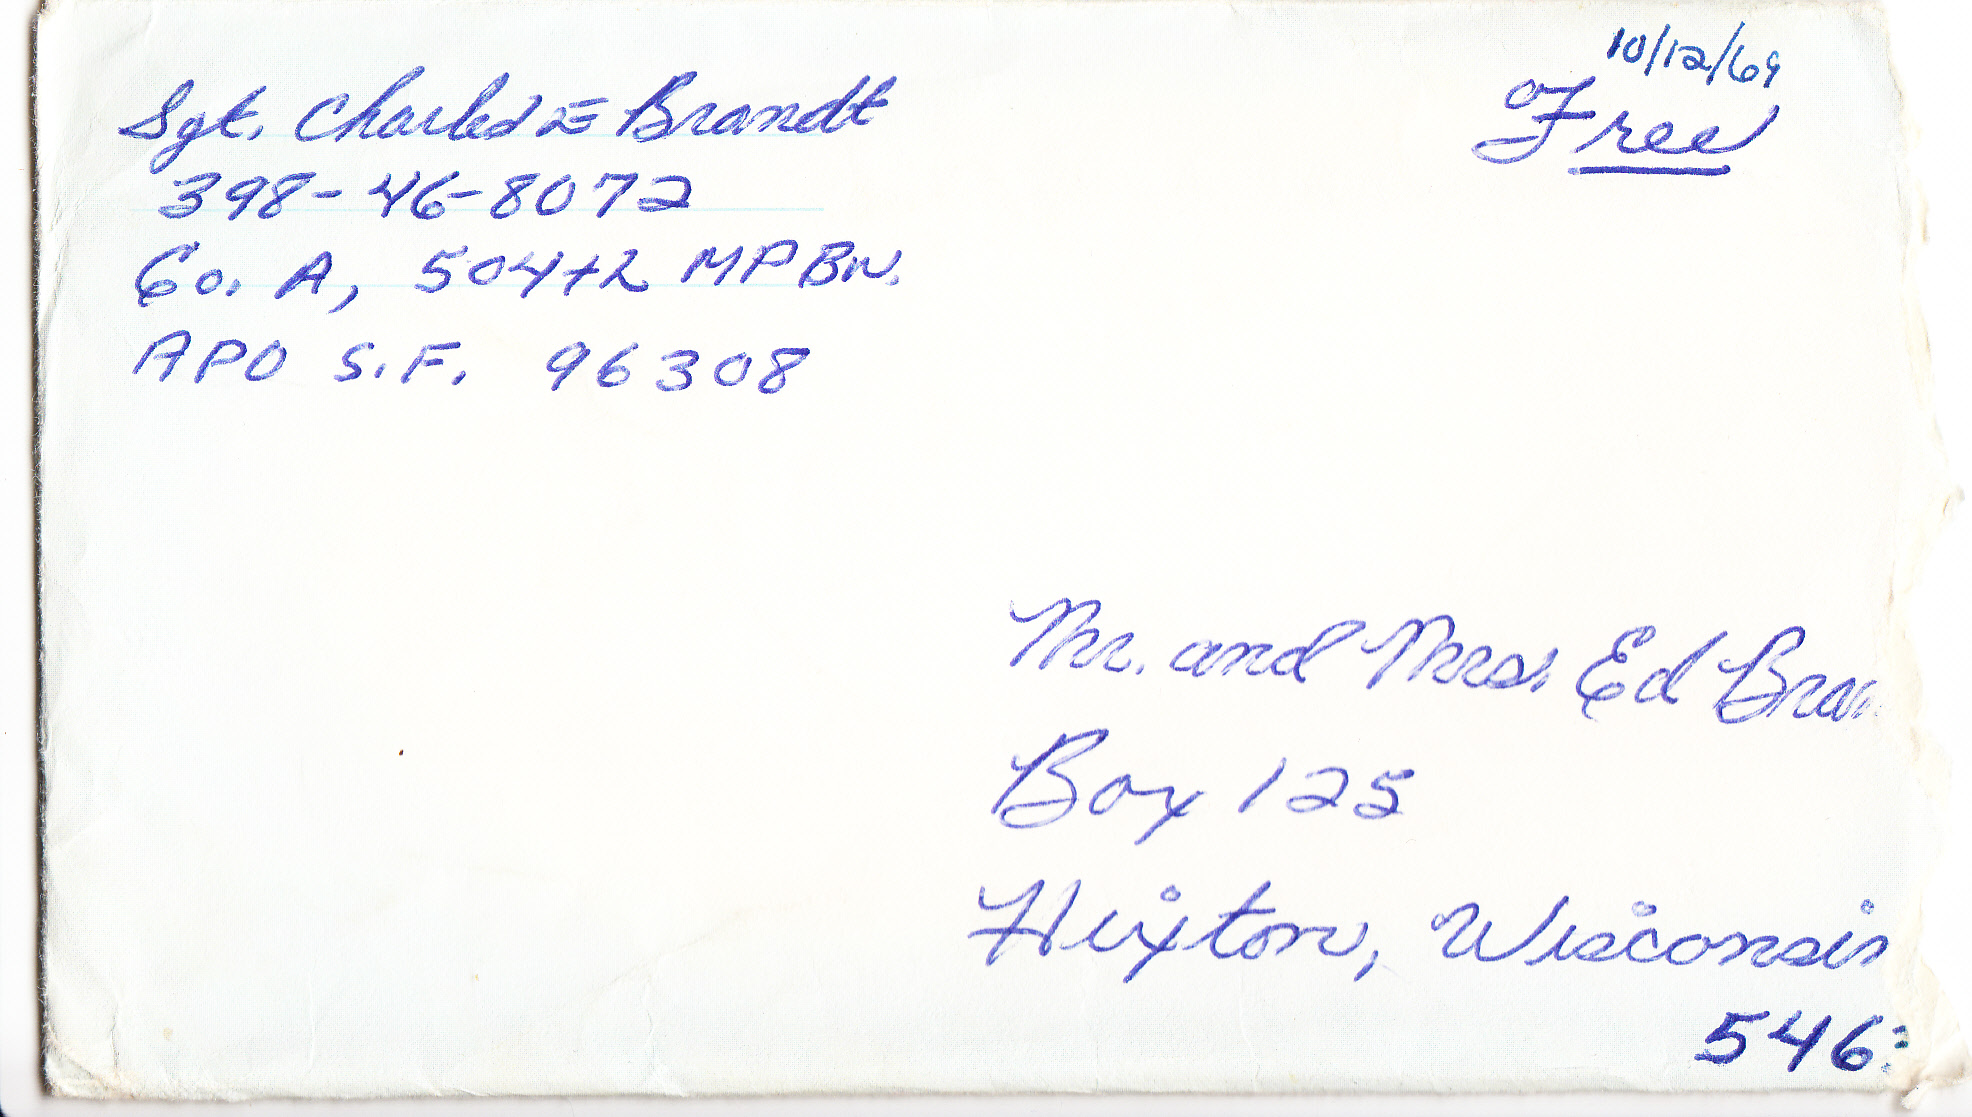 10/12/69
Sgt. Charles E Brandt
Free
398-46-8072
Co. A, 504th MP BN.
APO S.F. 96308
Mr. and Mrs. Ed Bran
Box 125
Hixton, Wisconsin
546